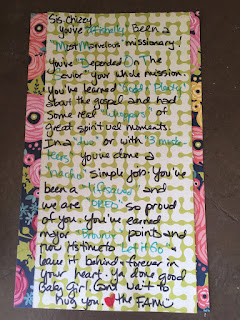 Sis. Chizzy
You've been a
"Most Marvelous missionary!
You've "Depended On The
Savior" your whole mission.
You've learned "Good & Plenty"
about the gospel and had
Some real "whoppers" of
great spiritual moments.
In a "duo" or with "3 muske
teers" you've done a
"nacho" simple job. You've
been a and
we are so proud
of you. You've earned
major points and
now its time to Let it Go &
leave it behind & forever in
your heart. Ya done good
Baby Girl. Can't wait to
hug you. ❤ the FAM